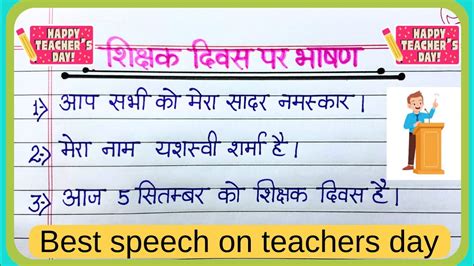 HAPPY
TEACHER'S
DAY!
HAPPY
TEACHER'S
DAY!
शिक्षक दिवस पर भाषण
1:) आप सभी को मेरा सादर नमस्कार।
2:) मेरा नाम यशस्वी शर्मा है।
3:) आज 5 सितम्बर को शिक्षक दिवस है।
Best speech on teachers day